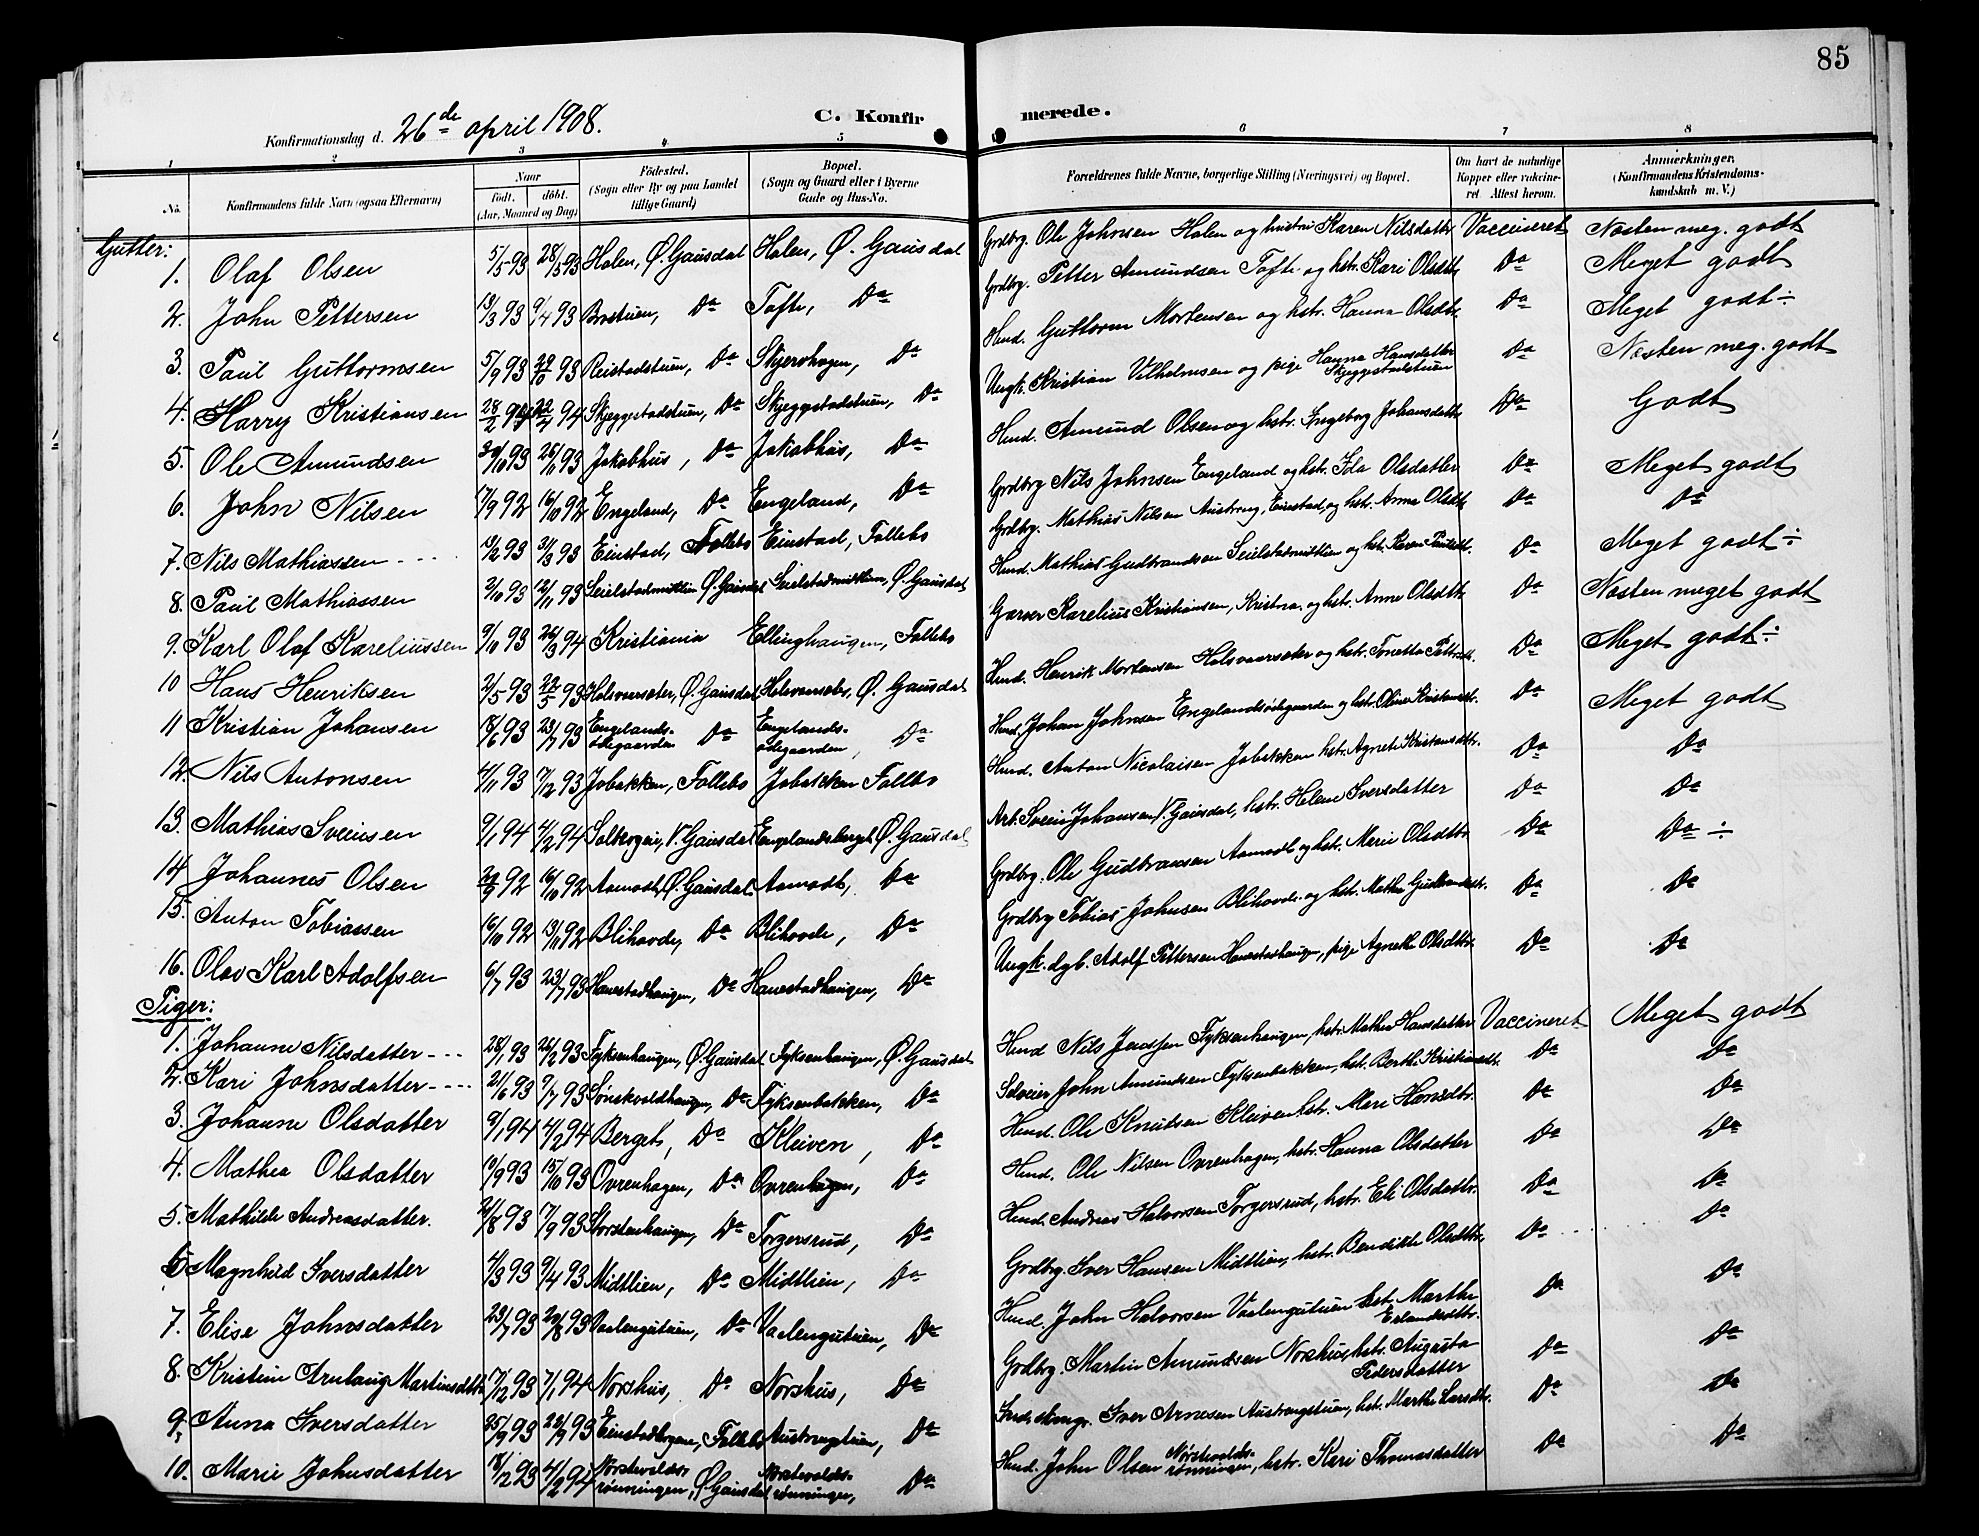 85
C. Konfirmerede.
Konfirmationsdag d. 26de april 1908.
1 2 3 4 5 6 7 8
No.
Konfirmandens fulde Navn (ogsaa Efternavn)
Naar
født. døbt.
(Aar, Maaned og Dag)
Fødested.
(Sogn eller By og paa Landet
tillige Gaard)
Bopæl.
(Sogn og Gaard eller i Byerne
Gade og Hus-No.
Forældrenes fulde Navne, borgerlige Stilling (Næringsvei) og Bopæl.
Om havt de naturlige
Kopper eller vaccine-
ret. Attest herom.
Anmærkninger.
(Konfirmandens Kristendoms-
kundskab m. V.)
Gutter:
1. Olaf Olsen 5/5 93 28/5 93 Holen, Ø. Gausdal Holen, Ø. Gausdal Grdbrg. Ole Johnsen Holen og hustru Karen Nilsdatter Vaccineret Næsten meg. godt
2. John Pettersen 13/3 93 9/4 93 Brostuen, Do Tofte, Do Grdbrg. Petter Amundsen Tofte og hstr. Kari Olsdtr. Do Meget godt
3. Paul Guttormsen 5/9 93 Reistadstuen, Do Skjershagen, Do Husd. Guttorm Mortensen og hstr. Hanna Olsdtr. Do Meget godt ÷
4. Harry Kristiansen 28/2 94 22/4 94 Skjeggestadstuen, Do Skjeggestadstuen, Do Ungk. Kristian Vilhelmsen og pige Hanna Hansdatter Skjeggestadstuen Do Næsten meg. godt
5. Ole Amundsen 30/10 93 26/11 93 Jakobhus, Do Jakobhus, Do Husd. Amund Olsen og hstr. Ingeborg Johansdatter Do Godt
6. John Nilsen 17/9 92 16/10 92 Engeland, Do Engeland, Do Grdbrg. Nils Johnsen Engeland og hstr. Ida Olsdatter Do Meget godt
7. Nils Mathiassen 13/2 93 31/3 93 Einstad, Follebo Einstad, Follebo Grdbrg. Mathias Nilsen Austreng, Einstad, og hstr. Anna Olsdtr. Do Do
8. Paul Mathiassen 2/10 93 12/11 93 Seielstadmidtlien Ø. Gausdal Seielstadmidtlien, Ø. Gausdal Husd. Mathias Gudbrandsen Seielstadmidtlien og hstr. Karen Paulsdtr. Do Meget godt ÷
9. Karl Olaf Kareliussen 9/10 93 26/3 94 Kristiania Ellinghaugen, Follebo Garver Karelius Kristiansen, Kristnia. og hstr. Anne Olsdtr. Do Næsten meget godt
10 Hans Henriksen 2/5 93 22/5 93 Holsvensæter, Ø. Gausdal Holsvensæter, Ø. Gausdal Husd. Henrik Mortensen og hstr. Tonetta Do Meget godt ÷
11 Kristian Johansen 18/6 93 23/7 93 Engelands-ødegaarden Do Engelands-ødegaarden, Do Husd. Johan Johnsen Engelandsødegaarden og hstr. Oline Kristiansdtr. Do Meget godt
12. Nils Antonsen 4/11 93 17/12 93 Jobakken, Follebo Jobakken Follebo Husd. Anton Nicolaisen Jobakken hstr. Agnete Kristansdtr. Do Do
13. Mathias Sveinsen 9/1 94 4/2 94 Solbergeie, V. Gausdal Engelandsberget, Ø. Gausdal Arb. Svein Johansen V. Gausdal, hstr. Helene Iversdatter Do Do
14. Johannes Olsen 16/10 92 Aamodt, Ø. Gausdal Aamodt, Do Grdbrg. Ole Gudbransen Aamodt og hstr. Marie Olsdtr. Do Do ÷
15. Anton Tobiassen 16/10 92 13/11 92 Blihovde, Do Blihovde, Do Grdbrg Tobias Johnsen Blihovde og hstr. Mathea Gudbrandsdtr. Do Do
16. Olav Karl Adolfsen 6/7 93 23/7 93 Hanestadhaugen, Do Hanestadhaugen, Do Ungk. dgb. Adolf Pettersen Hanestadhaugen, pige Agnethe Olsdtr. Do Do
Piger:
1. Johanne Nilsdatter 28/1 93 26/2 93 Fyksenhaugen, Ø. Gausdal Fyksenhaugen, Ø. Gausdal Husd Nils Fyksenhaugen, hstr. Mathea Hansdatter Vaccineret Meget godt
2. Kari Johnsdatter 21/6 93 9/7 93 Do Fyksenbakken, Do Selveier John Amundsen Fyksenbakken, hstr. Berthe Kristiansdtr. Do Do
3. Johanne Olsdatter 9/1 94 4/2 94 Berget, Do Kleiven, Do Husd. Ole Knudsen Kleiven hstr. Mari Hansdtr. Do Do
4. Mathea Olsdatter 19/9 93 15/10 93 Ovrenhagen, Do Ovrenhagen, Do Husd. Ole Nilsen Ovrenhagen, hstr. Hanna Olsdatter Do Do
5. Mathilde Andreasdatter. 21/8 93 17/9 93 Storstenhaugen, Do Torgersrud, Do Husd. Andreas Halvorsen Torgersrud, hstr. Eli Olsdatter. Do Do
6 Magnhild Iversdatter 4/3 93 9/4 93 Midtlien, Do Midtlien, Do Grdbrg. Iver Hansen Midtlien, hstr. Bendikte Olsdtr. Do Do
7. Elise Johnsdatter 23/7 93 20/8 93 Vaalengstuen, Do Vaalengstuen, Do Husd. John Halvorsen Vaalengstuen hstr. Marthe Erlandsdtr. Do Do
8. Kristine Arnlaug Martinsdtr. 17/12 93 7/1 94 Norshus, Do Norshus, Do Grdbrg. Martin Amundsen Norshus, hstr. Augusta Pedersdatter Do Do
9. Anna Iversdatter 25/9 93 Einstadbogene, Follebo Austrengstuen, Do Iver Arnesen Austrengstuen, hstr. Marthe Larsdtr. Do Do
10. Marie Johnsdatter 18/12 93 4/2 94 Nørstevolds-rønningen, Ø. Gausdal Nørstevolds-rønningen, Do Husd. John Olsen Nørstevolds-rønningen, hstr. Kari Thomasdatter Do Do